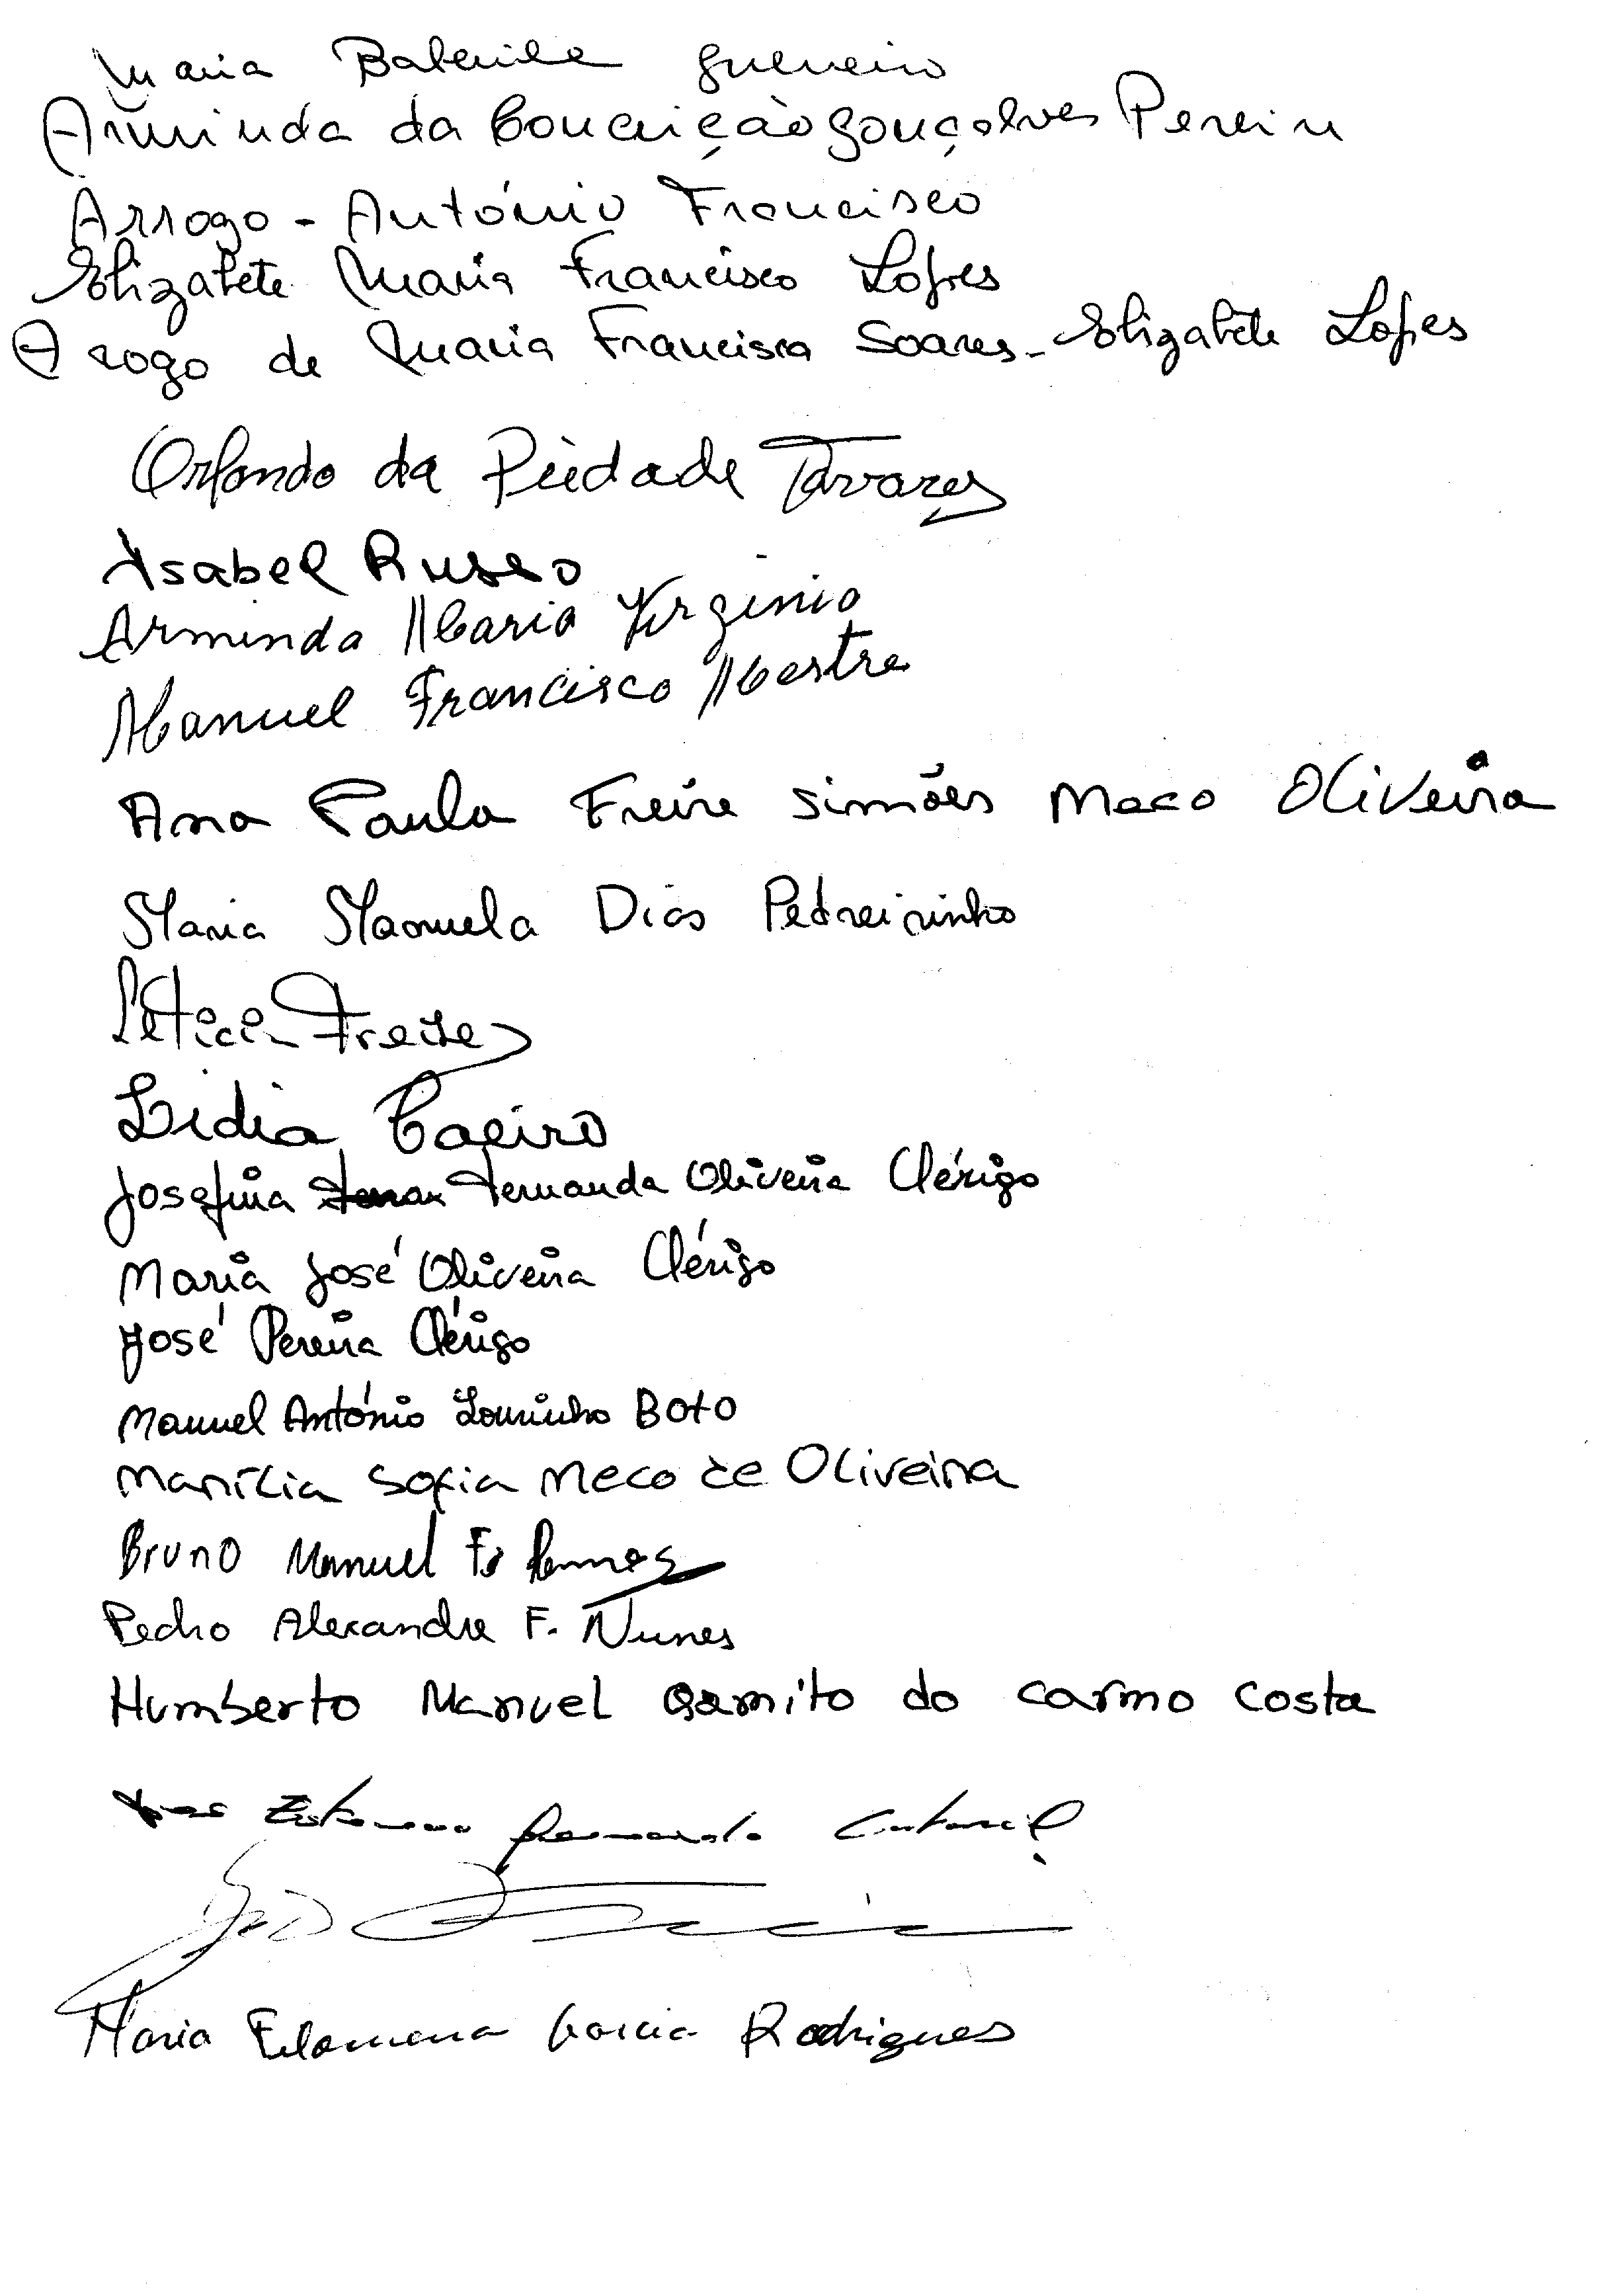 Maria Guerreiro
Arminda da Conceição Gonçalves Pereira
Arrogo - António Francisco
Elizabete Maria Francisco Lopes
A rogo de Maria Francisca Soares - Elizabete Lopes
Orlando da Piedade Tavares
Isabel Russo
Arminda Maria Virginio
Manuel Francisco Mestre
Ana Paula Freire Simões Meco Oliveira
Maria Manuela Dias Pedreirinho
Leticia Freire
Lidia Caeiro
Josefina Fernanda Oliveira Clérigo
Maria José Oliveira Clérigo
José Pereira Clérigo
Manuel António Lourinho Boto
Marília Sofia Meco de Oliveira
Bruno Manuel
Pedro Alexandre F. Nunes
Humberto Manuel Gamito do Carmo Costa
Maria Filomena Garcia Rodrigues